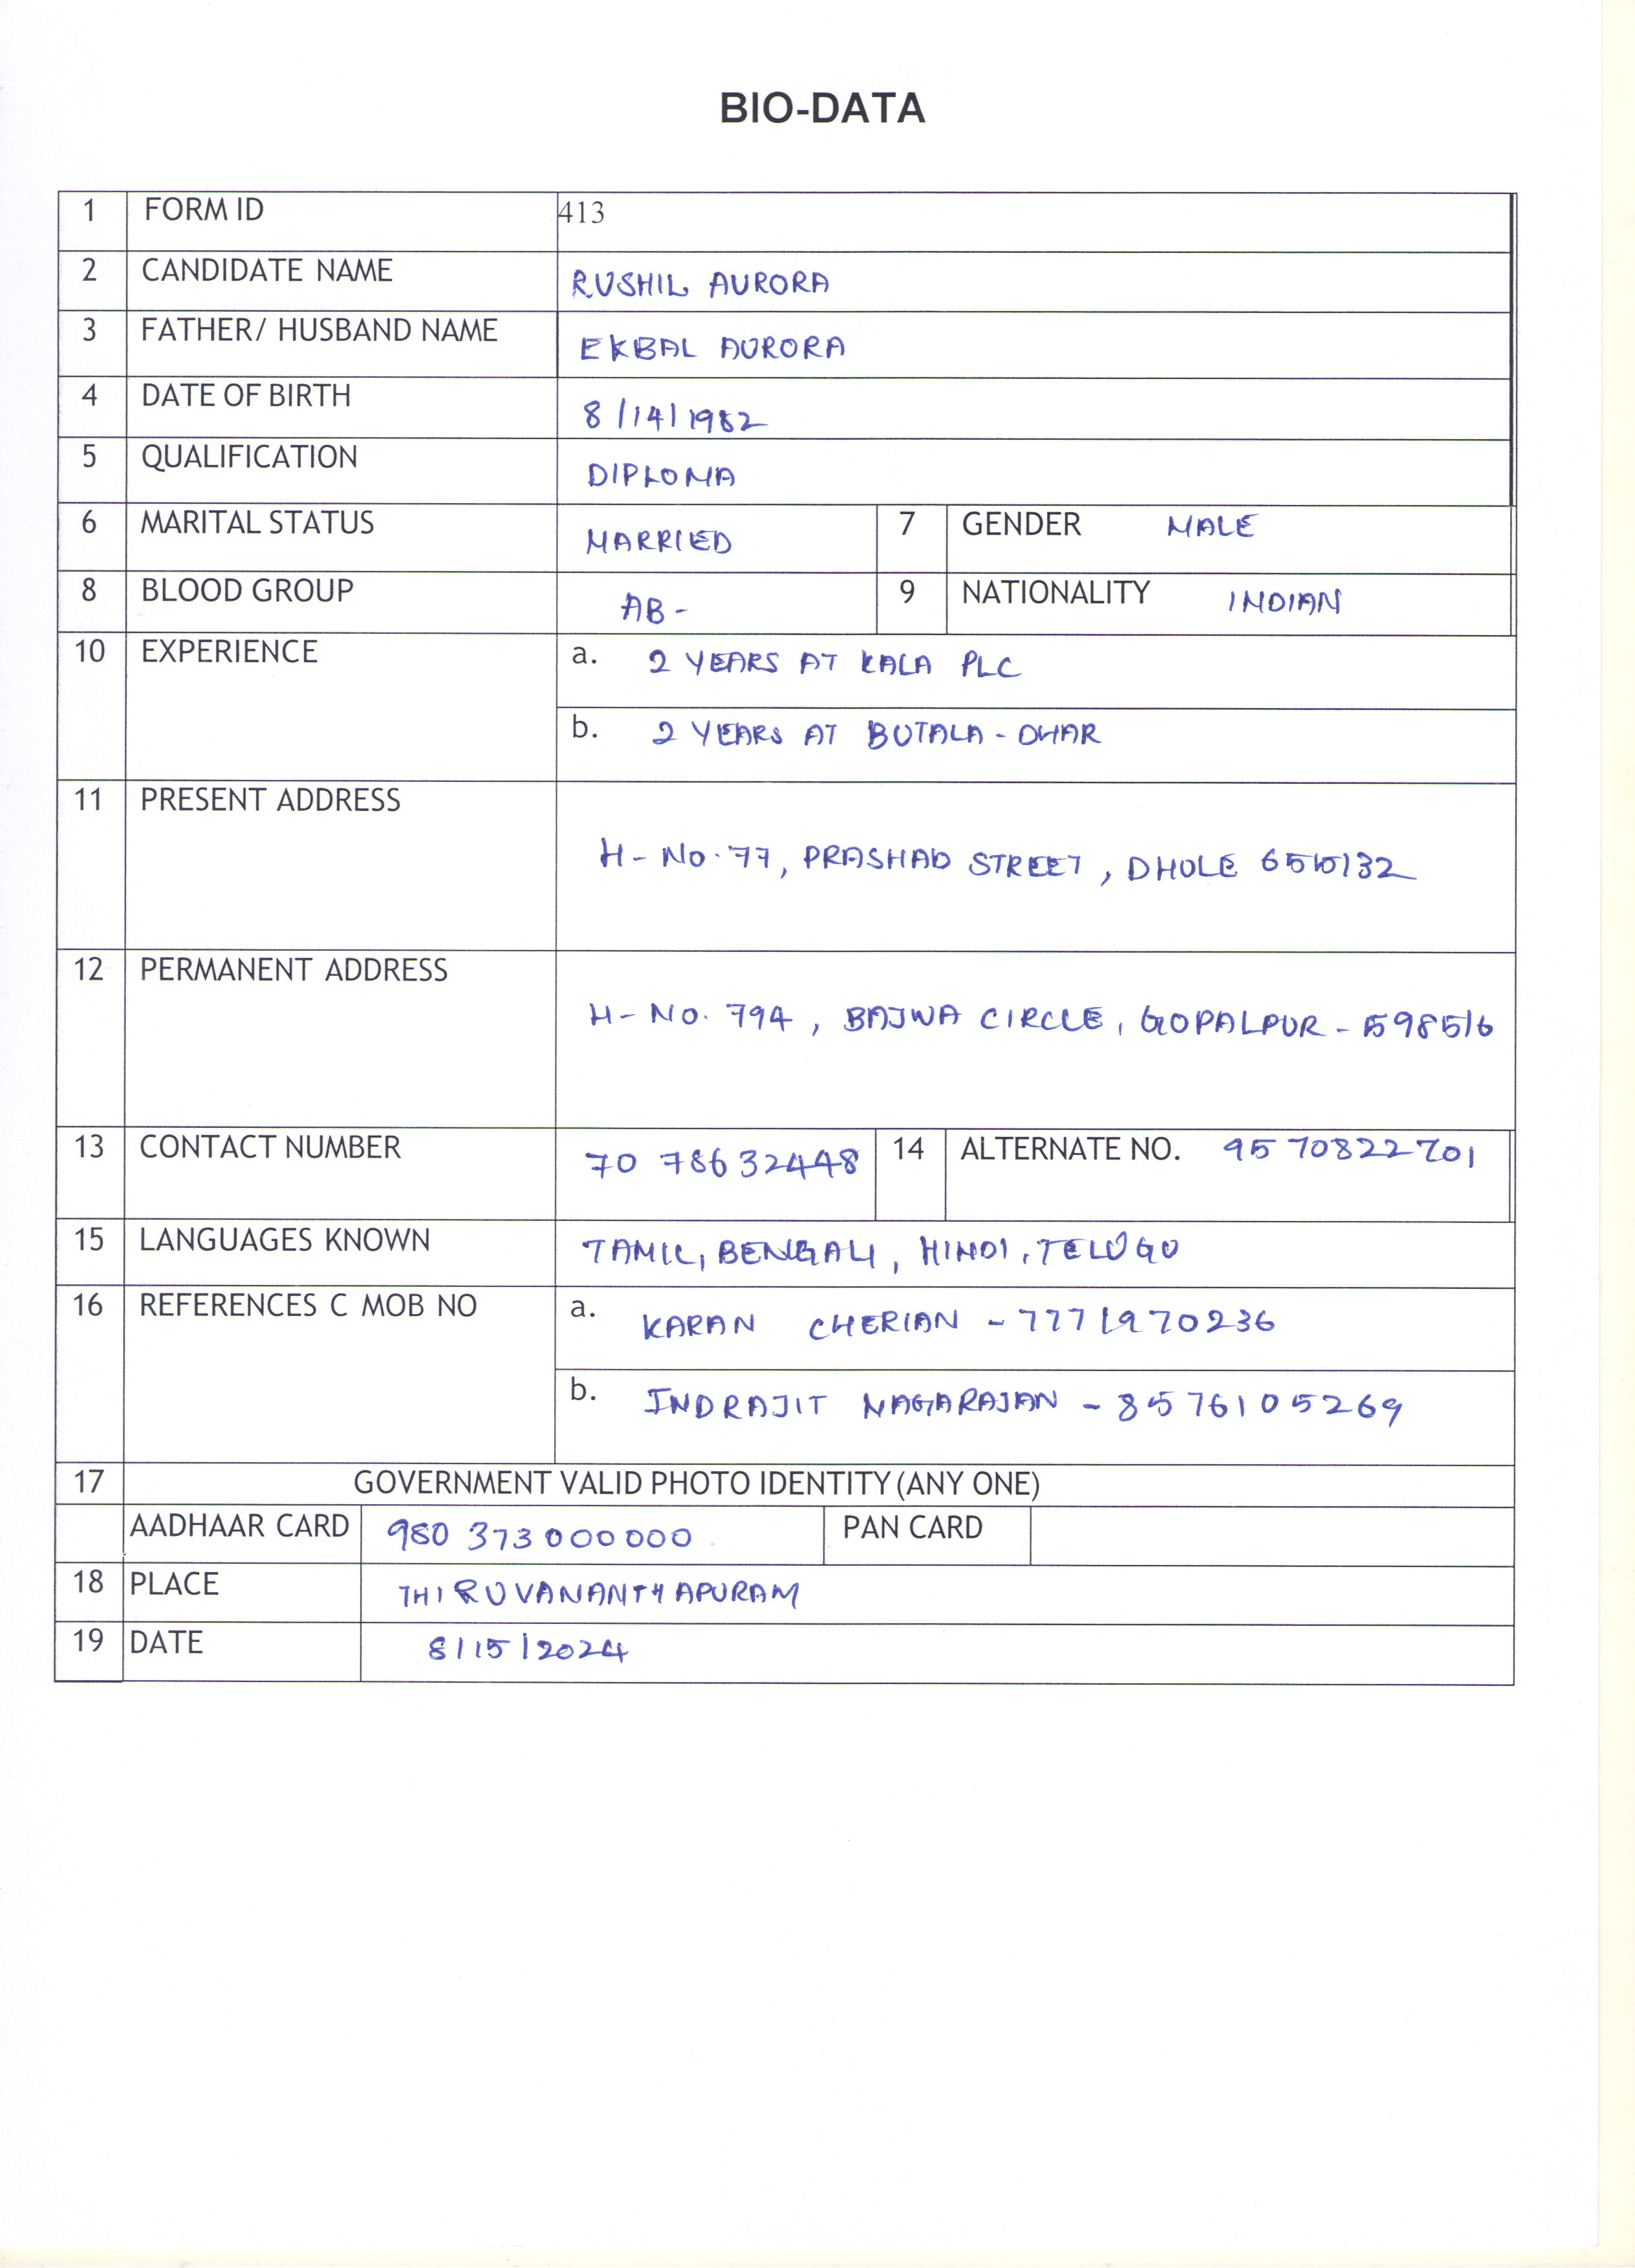 BIO-DATA
1 FORM ID 413
2 CANDIDATE NAME RUSHIL AURORA
3 FATHER/ HUSBAND NAME EKBAL AURORA
4 DATE OF BIRTH 8/14/1982
5 QUALIFICATION DIPLOMA
6 MARITAL STATUS MARRIED 7 GENDER MALE
8 BLOOD GROUP AB- 9 NATIONALITY INDIAN
10 EXPERIENCE a. 2 YEARS AT KALA PLC
b. 2 YEARS AT BUTALA-DHAR
11 PRESENT ADDRESS
H-No.77, PRASHAD STREET, DHOLE
12 PERMANENT ADDRESS
H-NO. 794, BAJWA CIRCLE, GOPALPUR - 598516
13 CONTACT NUMBER 70 78632448 14 ALTERNATE NO. 9570822701
15 LANGUAGES KNOWN TAMIL, BENGALI, HINDI, TELUGU
16 REFERENCES C MOB NO a. KARAN CHERIAN - 7771970236
b. INDRAJIT NAGARAJAN - 8576105269
17 GOVERNMENT VALID PHOTO IDENTITY (ANY ONE)
AADHAAR CARD 980 373000000 PAN CARD
18 PLACE THIRUVANANTHAPURAM
19 DATE 8/15/2024